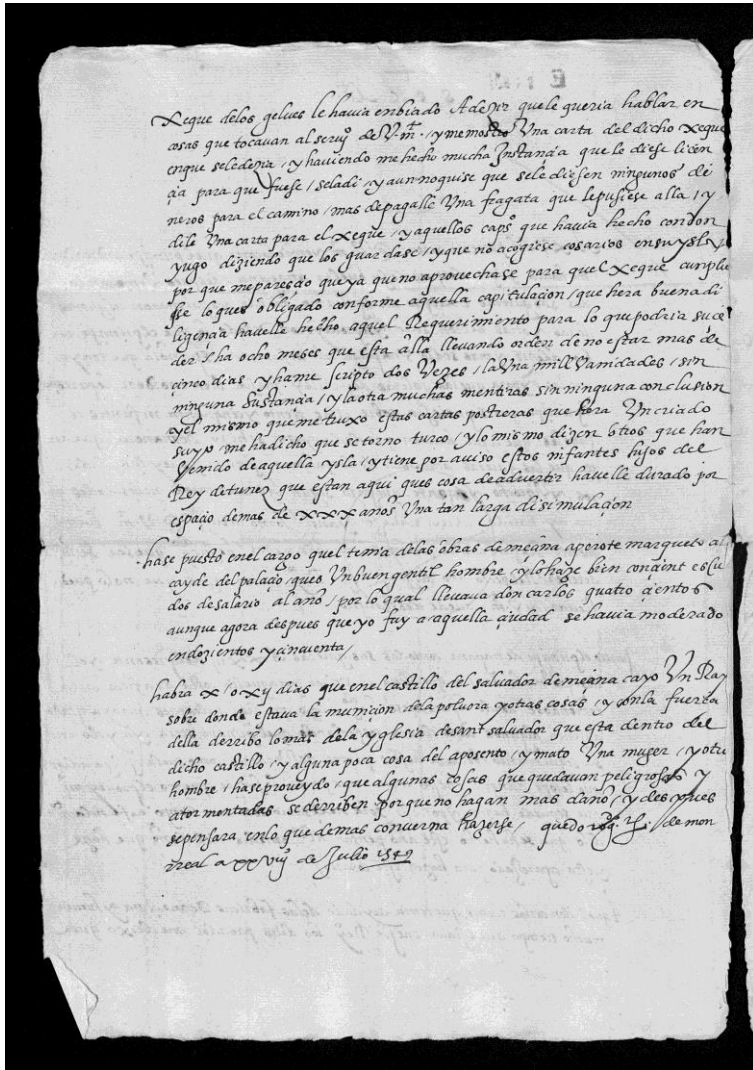 Xeque delos gelves le havia enbiado A dezir quele queria hablar en
cosas que tocavan al servjº de V. mt. / y me mostro Una carta del dicho xeque
enque sele dezia / y haviendo me hecho mucha Instancia que le diese licen
çia para que fuese / se la di / y aun no quise que sele diesen ningunos di
neros para el camino / mas de pagalle Una fragata que le pusiese alla / y
dile Una carta para el xeque / y aquellos capºs que havia hecho con don
yugo diziendo que los guardase / y que no acogiese cosarios en su ysla /
por que me paresçio que ya que no aprovechase para quel xeque cumplie
sse lo ques obligado conforme aquella capitulacion / que hera buena di
ligençia havelle hecho aquel Requerimiento para lo que podria suçe
der / ha ocho meses que esta alla llevando orden de no estar mas de
cinco dias y hame scripto dos Vezes / la Una mill Vanidades / sin
ninguna sustancia / y la otra muchas mentiras sin ninguna conclusion
y el mismo que me tuxo estas cartas postreras que hera Un criado
suyo me ha dicho que se torno turco / y lo mismo dizen otros que han
Venido de aquella ysla / y tiene por aviso estos infantes hijos del
Rey de tunez que estan aqui ques cosa de advertir havelle durado por
espaçio de mas de xxx anos Una tan larga disimulaçion
hase puesto enel cargo quel tenia delas obras de meçina a perote marqueto al
cayde del palaçio / ques Un buen gentil hombre / y lo haze bien con çient escu
dos de salario al año / por lo qual llevava don carlos quatro çientos
aunque agora despues que yo fuy a aquella çiudad se havia moderado
en dozientos y çinquenta /
habra x / o xij dias que enel castillo del salvador de meçina cayo Un Rayo
sobre donde estava la municion dela polvora y otras cosas / y con la fuerça
della derribo lo mas dela yglesia de sant salvador que esta dentro del
dicho castillo / y alguna poca cosa del aposento / y mato Una muger / y otro
hombre / hase proveydo / que algunas cosas que quedavan peligrosas y
atormentadas se derriben por que no hagan mas daño / y despues
se pensara enlo que demas converna hazerse / quedo de mon
rreal a xxviijº de Julio 1549